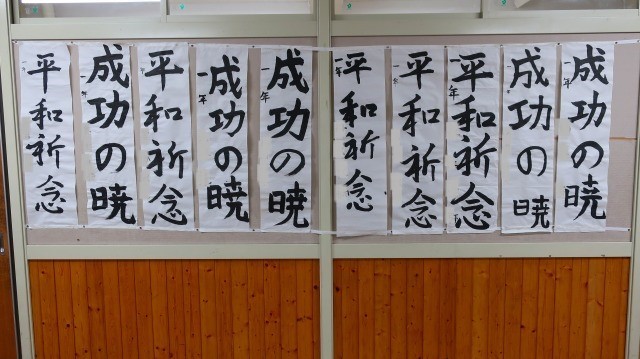 成功の暁
一年
成功の暁
平和祈念
一年
平和祈念
平和祈念
一年
成功の暁
一年
成功の暁
一年
平和祈念
成功の暁
平和祈念